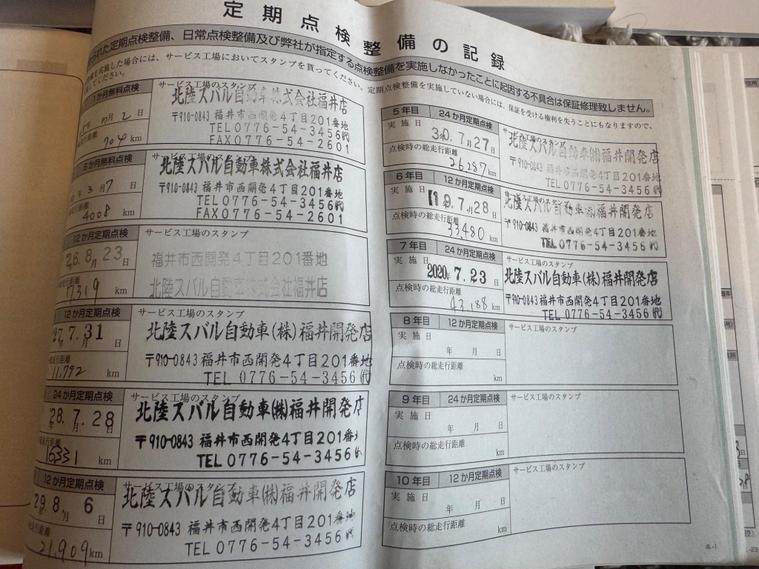 定期点検整備の記録
れた定期点検整備、日常点検整備及び弊社が指定する点検整備を実施しなかったことに起因する不具合は保証修理致しません。
を実施した場合には、サービス工場においてスタンプを貰ってください。定期点検整備を実施していない場合には、保証を受ける権利を失うことにもなりますので、
してください。
1か月無料点検
月2日
704 km
サービス工場のスタンプ
北陸スバル自動車株式会社福井店
〒910-0843 福井市西開発4丁目201番地
TEL 0776-54-3456㈹
FAX 0776-54-2601
6か月無料点検
3月7日
4008 km
サービス工場のスタンプ
北陸スバル自動車株式会社福井店
〒910-0843 福井市西開発4丁目201番地
TEL 0776-54-3456㈹
FAX 0776-54-2601
12か月定期点検
26.8月23日
7319 km
サービス工場のスタンプ
福井市西開発4丁目201番地
北陸スバル自動車株式会社福井店
12か月定期点検
27.7月31日
11,792 km
サービス工場のスタンプ
北陸スバル自動車(株)福井開発店
〒910-0843 福井市西開発4丁目201番地
TEL 0776-54-3456㈹
24か月定期点検
28.7.28
16331 km
サービス工場のスタンプ
北陸スバル自動車㈱福井開発店
〒910-0843 福井市西開発4丁目201番
TEL 0776-54-3456
12か月定期点検
29.8月6日
21,909 km
サービス工場のスタンプ
北陸スバル自動車㈱福井開発店
〒910-0843 福井市西開発4丁目201番地
TEL 0776-54-3456㈹
5年目 24か月定期点検
実施日 30.7月27日
点検時の総走行距離
26287 km
サービス工場のスタンプ
北陸スバル自動車㈱福井開発店
〒910-0843 福井市西開発4丁目201番地
TEL 0776-54-3456㈹
6年目 12か月定期点検
実施日 19.7月28日
点検時の総走行距離
33480 km
サービス工場のスタンプ
北陸スバル自動車㈱福井開発店
〒910-0843 福井市西開発4丁目201番地
TEL 0776-54-3456㈹
7年目 24か月定期点検
実施日 2020年7.23日
点検時の総走行距離
43,188 km
サービス工場のスタンプ
北陸スバル自動車(株)福井開発店
〒910-0843 福井市西開発4丁目201番地
TEL 0776-54-3456㈹
8年目 12か月定期点検
実施日
年 月 日
点検時の総走行距離
km
サービス工場のスタンプ
9年目 24か月定期点検
実施日
年 月 日
点検時の総走行距離
km
サービス工場のスタンプ
10年目 12か月定期点検
実施日
年 月 日
点検時の総走行距離
km
サービス工場のスタンプ